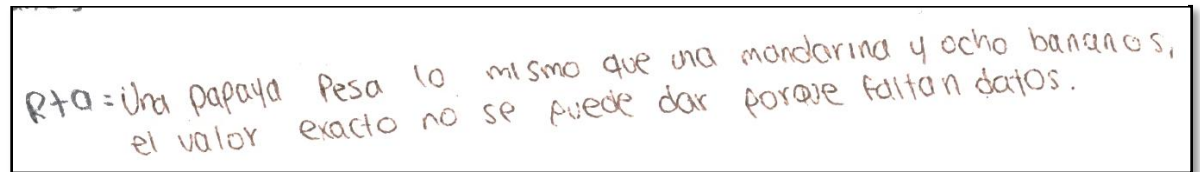 Rta = Una papaya Pesa lo mismo que una mandarina y ocho bananos,
el valor exacto no se puede dar porque faltan datos.